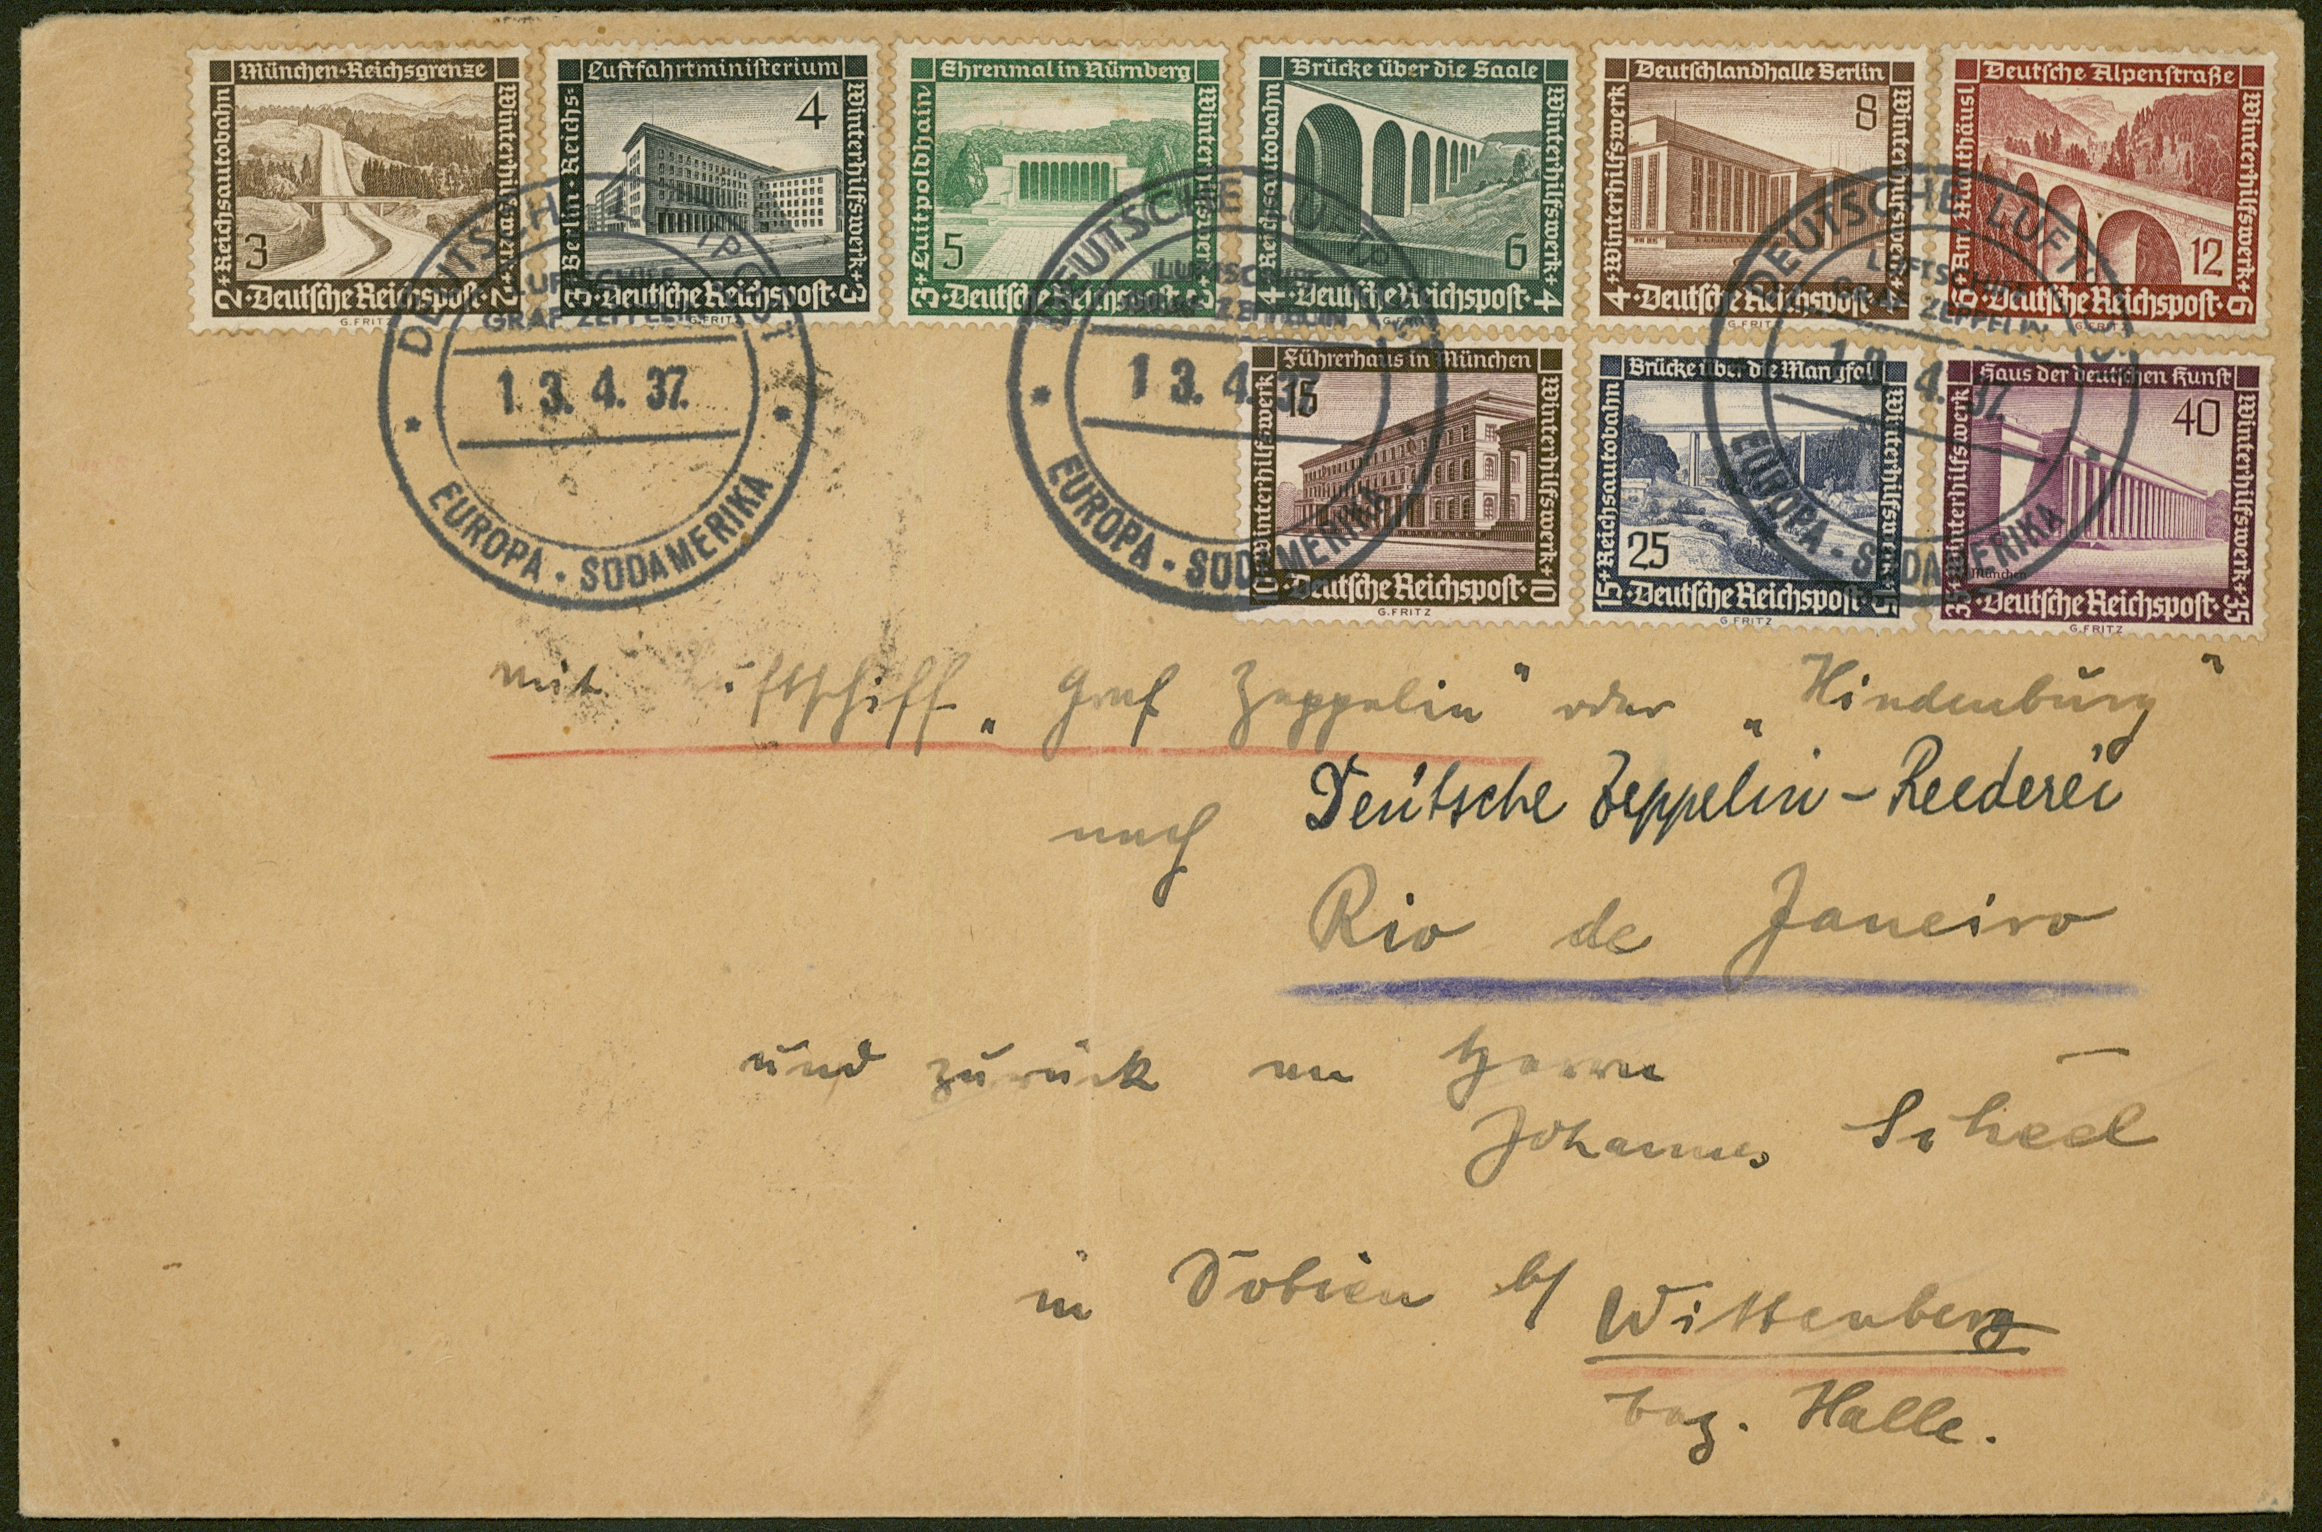 München-Reichsgrenze
2+Reichsautobahn
Winterhilfswerk+2
3
Deutsche Reichspost
G.FRITZ
Luftfahrtministerium
3+Berlin·Reichs-
Winterhilfswerk+3
4
Deutsche Reichspost
G.FRITZ
Ehrenmal in Nürnberg
3+Luitpoldhain
Winterhilfswerk+3
5
Deutsche Reichspost
Brücke über die Saale
4+Reichsautobahn
Winterhilfswerk+4
6
Deutsche Reichspost
Deutschlandhalle Berlin
4+Winterhilfswerk
Winterhilfswerk
8
Deutsche Reichspost
G.FRITZ
Deutsche Alpenstraße
6+Am Mauthäusl
Winterhilfswerk+6
12
Deutsche Reichspost
G.FRITZ
Führerhaus in München
10+Winterhilfswerk
Winterhilfswerk+10
15
Deutsche Reichspost
G.FRITZ
Brücke über die Mangfall
15+Reichsautobahn
Winterhilfswerk+15
25
Deutsche Reichspost
G.FRITZ
Haus der deutschen Kunst
35+Winterhilfswerk
Winterhilfswerk+35
40
München
Deutsche Reichspost
G.FRITZ
DEUTSCHE LUFTPOST
LUFTSCHIFF
GRAF ZEPPELIN
13.4.37.
EUROPA - SÜDAMERIKA
DEUTSCHE LUFTPOST
LUFTSCHIFF
GRAF ZEPPELIN
13.4.37
EUROPA - SÜDAMERIKA
DEUTSCHE LUFTPOST
LUFTSCHIFF
GRAF ZEPPELIN
13.4.37.
EUROPA - SÜDAMERIKA
mit Luftschiff „Graf Zeppelin" oder „Hindenburg"
Deutsche Zeppelin-Reederei
nach
Rio de Janeiro
und zurück an Herrn
Johannes Scheel
in Dobien b/ Wittenberg
Bez. Halle.